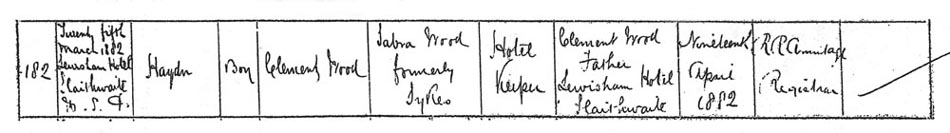 182
Twenty fifth
March 1882
Lewisham Hotel
Slaithwaite
U. S. D.
Haydn
Boy
Clement Wood
Tabra Wood
formerly
Sykes
Hotel
Keeper
Clement Wood
Father
Lewisham Hotel
Slaithwaite
Nineteenth
April
1882
R R Armitage
Registrar